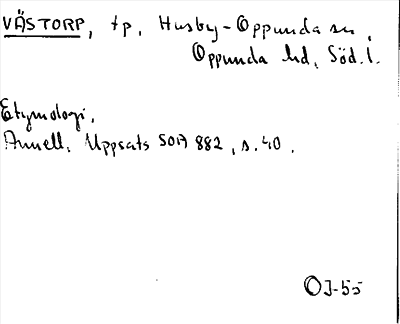 VÄSTORP, tp, Husby-Oppunda sn,
Oppunda hd, Söd.l.
Etymologi,
Annell, Uppsats SOA 882, s. 40.
OJ-55